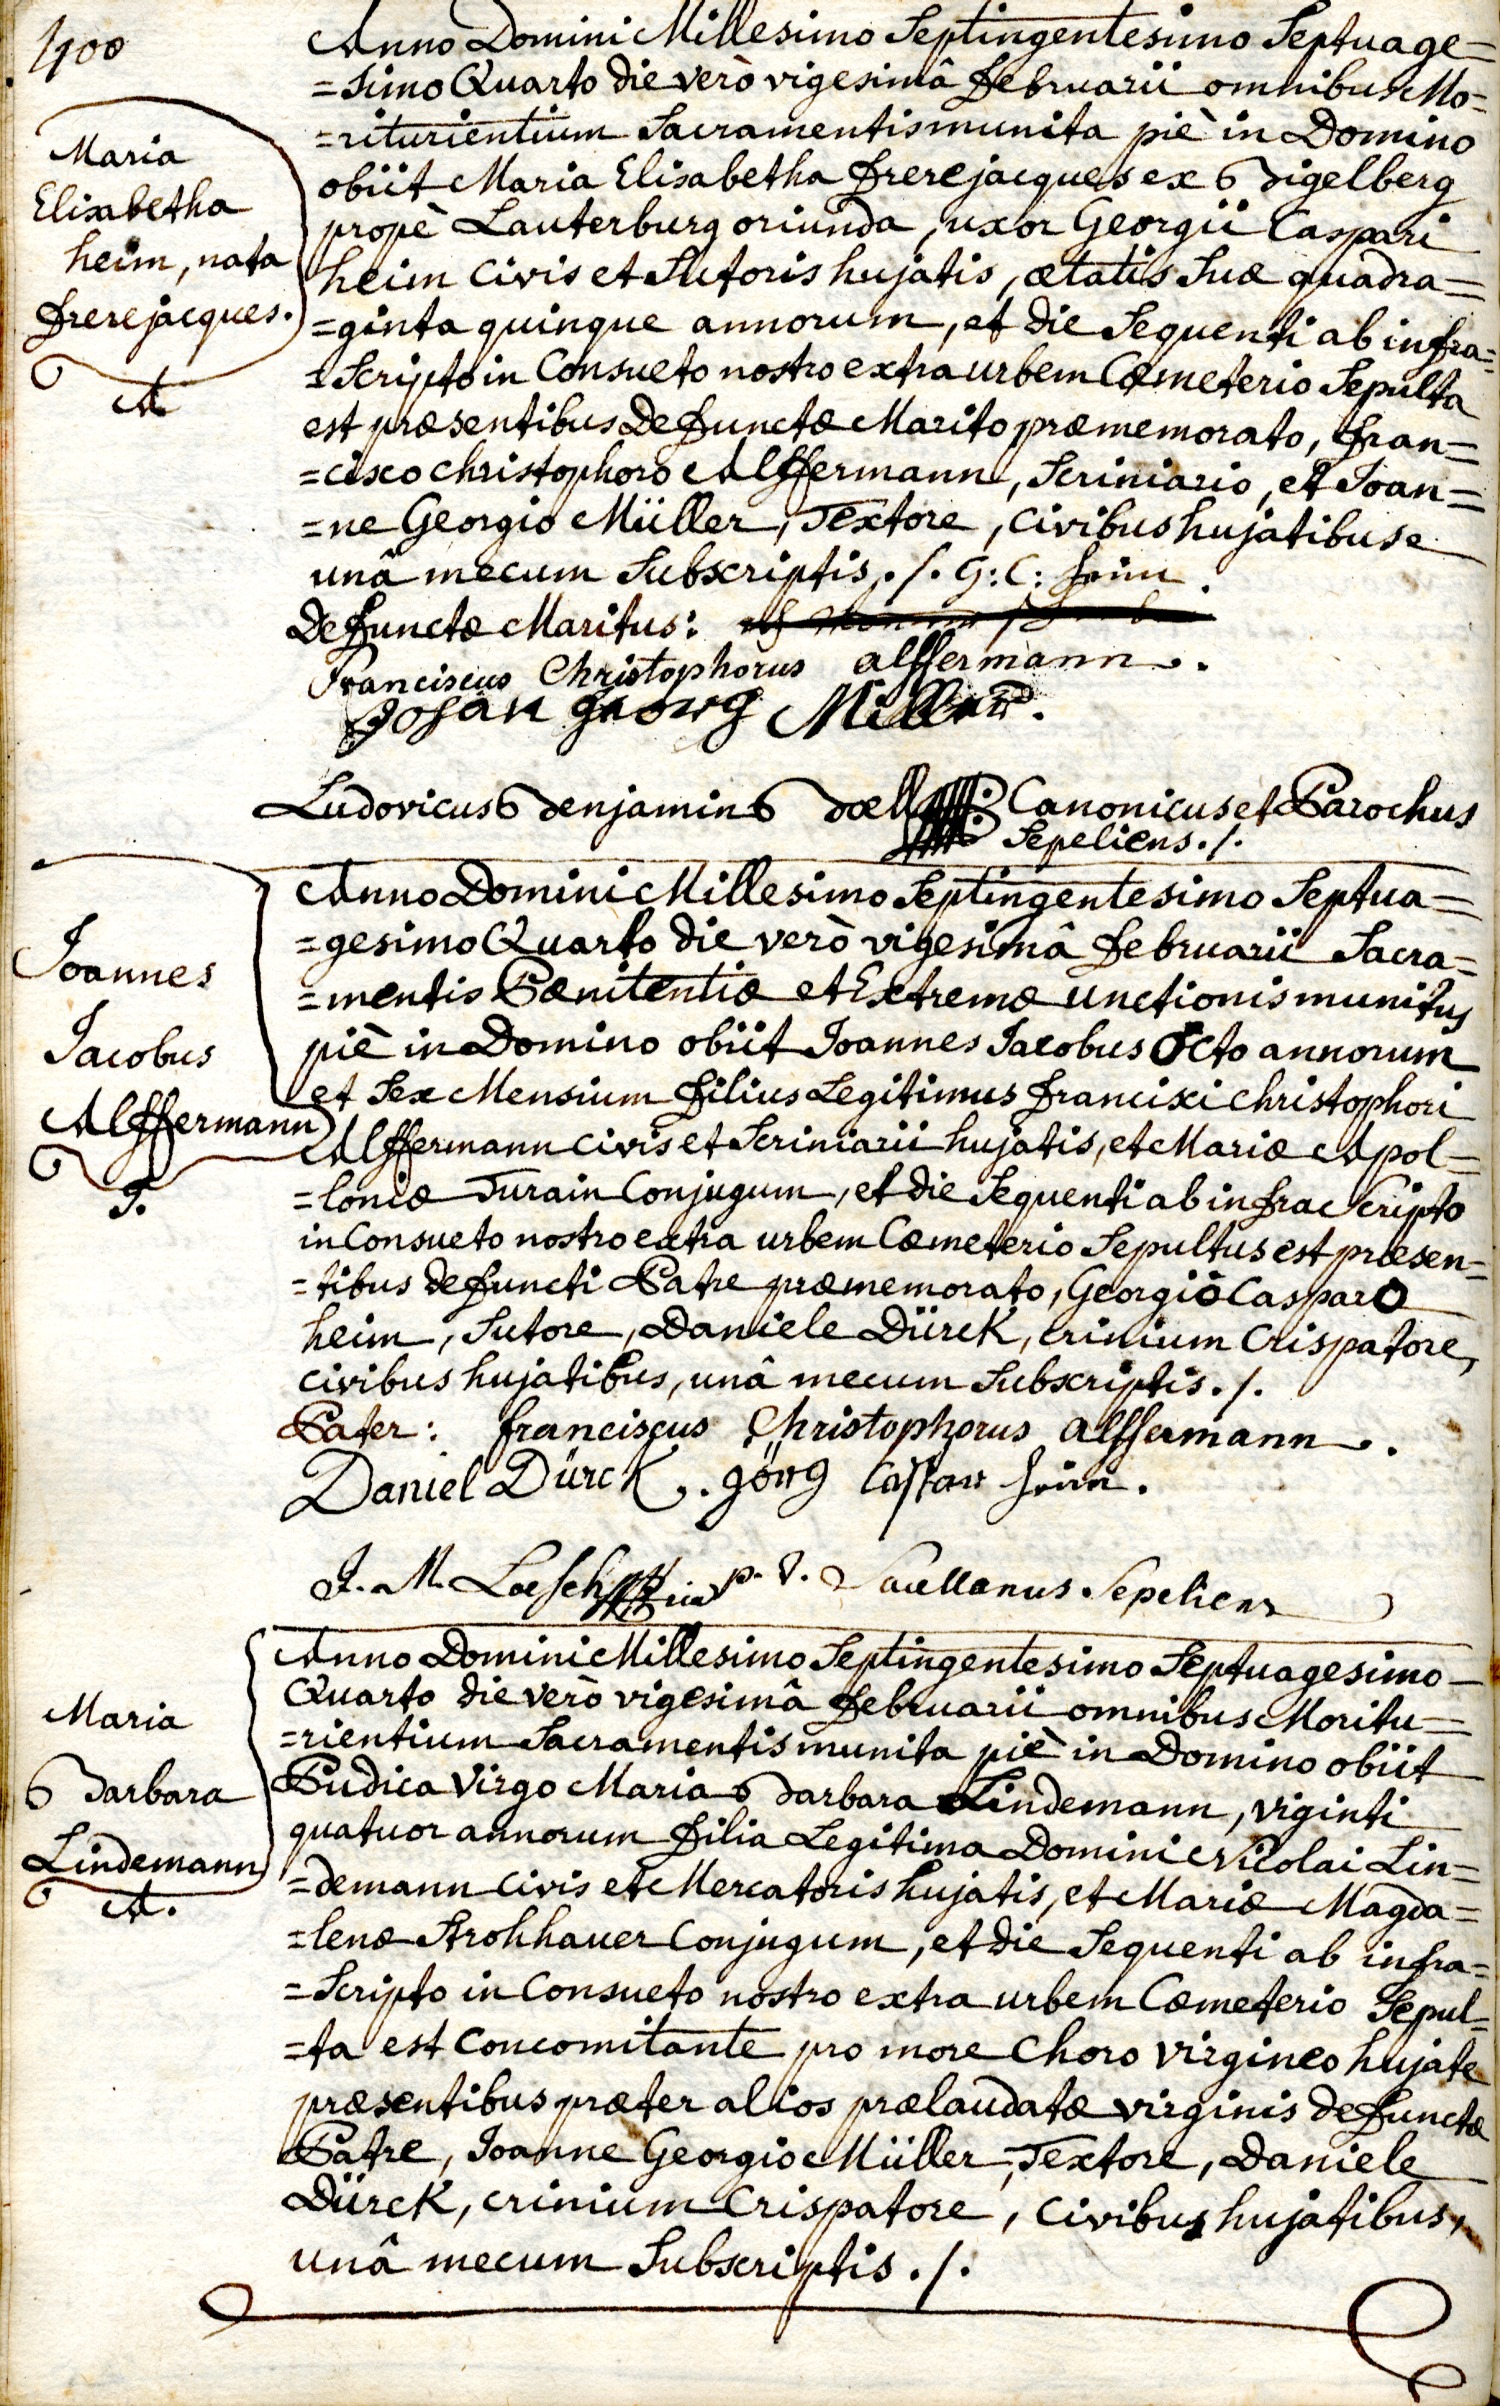 400
Anno Domini Millesimo Septingentesimo Septuage=
=simo Quarto die verò vigesimâ Februarii omnibus Mo=
=riturientium Sacramentis munita piè in Domino
Maria
Elisabetha
heim, nata
frerejacques.
A
obiit Maria Elisabetha frerejacques ex Bigelberg
propè Lauterburg oriunda, uxor Georgii Caspari
heim Civis et Sutoris hujatis, ætatis suæ quadra=
=ginta quinque annorum, et die Sequenti ab infra=
=Scripto in Consueto nostro extra urbem Cœmeterio Sepulta
est præsentibus Defunctæ Marito præmemorato, fran=
=cisco christophoro Alffermann, Scriniario, et Joan=
=ne Georgio Müller, Textore, civibus hujatibus e
unâ mecum Subscriptis ./. G: C: heim.
Defunctæ Maritus:
Franciscus Christophorus alffermann.
Johan georg Miller.
Ludovicus Benjamin Boell Canonicus et Parochus
Sepeliens ./.
Joannes
Jacobus
Alffermann
J.
Anno Domini Millesimo Septingentesimo Septua=
=gesimo Quarto die verò vigesimâ Februarii Sacra=
=mentis Pœnitentiæ et Extremæ unctionis munitus
piè in Domino obiit Joannes Jacobus Octo annorum
et Sex Mensium filius Legitimus francisci christophori
Alffermann civis et Scriniarii hujatis, et Mariæ Apol=
=loniæ Turain Conjugum, et die Sequenti ab infrascripto
in Consueto nostro extra urbem Cœmeterio Sepultus est præsen=
=tibus defuncti Patre præmemorato, Georgio Casparo
heim, Sutore, Daniele Dürck, crinium Crispatore,
civibus hujatibus, unâ mecum Subscriptis ./.
Pater: franciscus Christophorus alffermann.
Daniel Dürck. görg Casbar heim.
J. M. Loesch p. t. Sacellanus Sepeliens
Maria
Barbara
Lindemann
A.
Anno Domini Millesimo Septingentesimo Septuagesimo
Quarto die verò vigesimâ Februarii omnibus Moritu=
=rientium Sacramentis munita piè in Domino obiit
Pudica Virgo Maria Barbara Lindemann, viginti
quatuor annorum filia Legitima Domini Nicolai Lin=
=demann civis et Mercatoris hujatis, et Mariæ Magda=
=lenæ Strohhauer Conjugum, et die Sequenti ab infra=
=Scripto in Consueto nostro extra urbem Cœmeterio Sepul=
=ta est Concomitante pro more Choro virgineo hujate
præsentibus præter alios prælaudatæ virginis defunctæ
Patre, Joanne Georgio Müller, Textore, Daniele
Dürck, crinium Crispatore, civibus hujatibus,
unâ mecum Subscriptis ./.